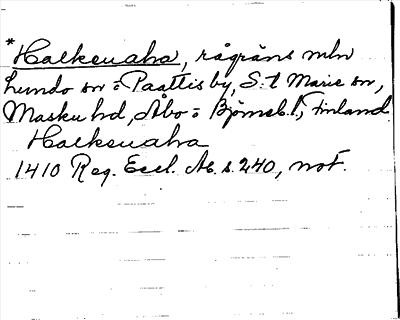 *Halkeuaha, rågräns mln
Lundo sn o Paattis by, S:t Marie sn,
Masku hd, Åbo o Björneb. l., Finland
Halkeuaha
1410 Reg. Eccl. Ab. s. 240, not.